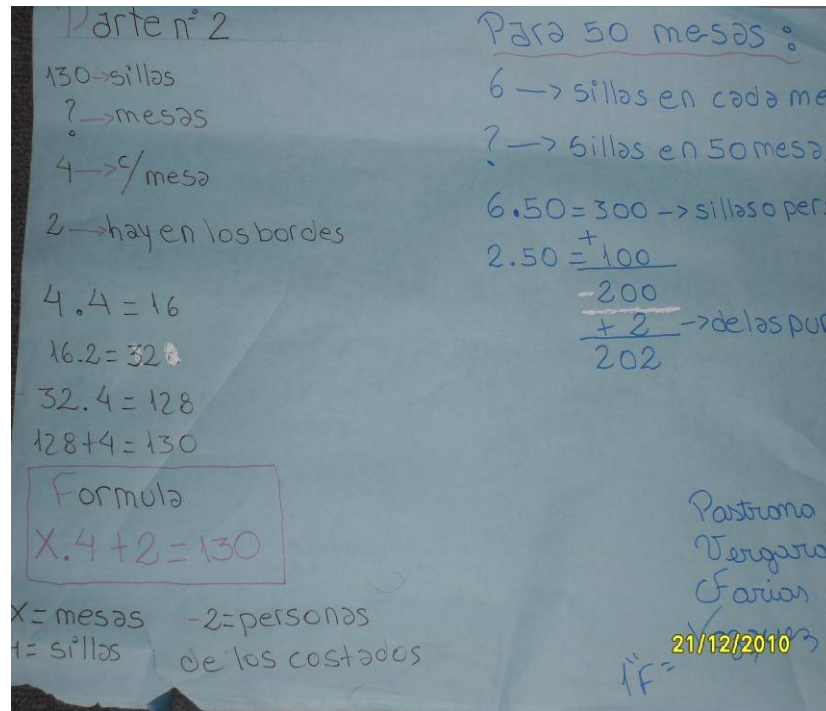 Parte n° 2
130->sillas
? ->mesas
4->c/mesa
2->hay en los bordes
4.4=16
16.2=32
32.4=128
128+4=130
Formula
X.4+2=130
X=mesas -2=personas
4=sillas de los costados
Para 50 mesas:
6 -> sillas en cada me
? -> sillas en 50 mesa
6.50=300 -> sillas o per
2.50=+100
-200
+ 2 ->de las pun
202
Pastrana
Vergara
Farias
21/12/2010
1"F"